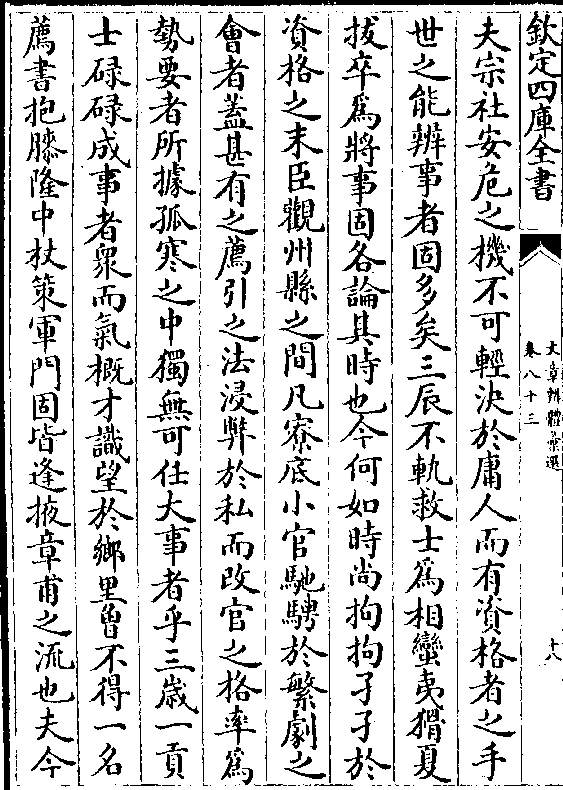 欽定四庫全書
文章辨體彙選
卷八十三
十八
夫宗社安危之機不可輕決於庸人而有資格者之手
世之能辦事者固多矣三辰不軌救士為相蠻夷猾夏
拔卒為將事固各論其時也今何如時尚拘拘孑孑於
資格之末臣觀州縣之間凡寮底小官馳騁於繁劇之
會者蓋甚有之薦引之法浸弊於私而改官之格率為
勢要者所據孤寒之中獨無可仕大事者乎三歲一貢
士碌碌成事者衆而氣概才識望於鄉里曾不得一名
薦書抱膝隆中杖策軍門固皆逢掖章甫之流也夫今